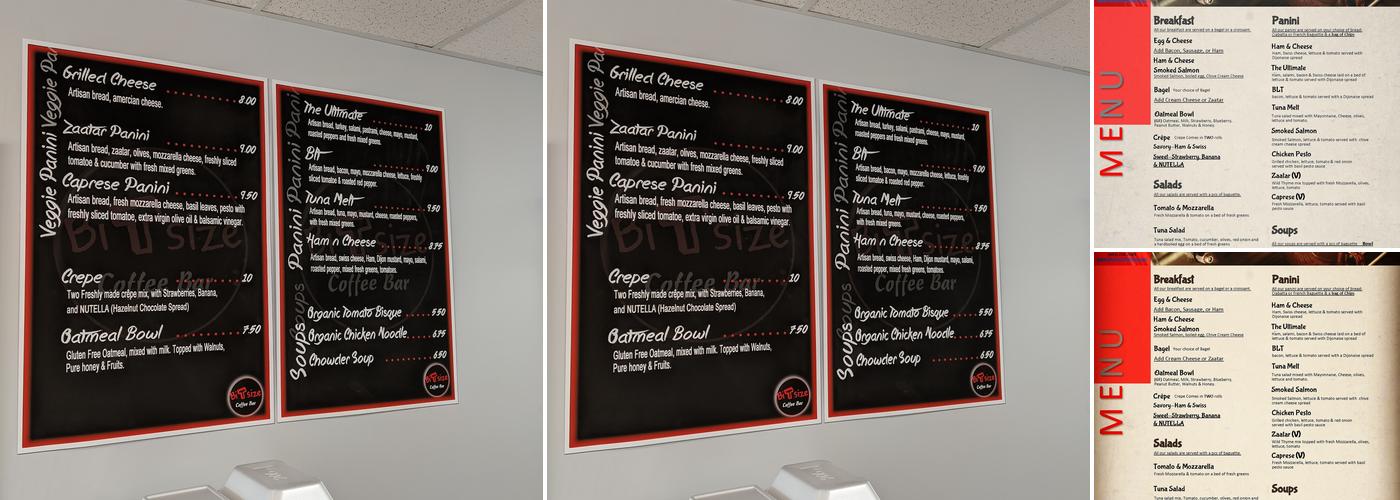 Veggie Panini Veggie Pa
Grilled Cheese 8.00
Artisan bread, amercian cheese.
Zaatar Panini 9.00
Artisan bread, zaatar, olives, mozzarella cheese, freshly sliced
tomatoe & cucumber with fresh mixed greens.
Caprese Panini 9.50
Artisan bread, fresh mozzarella cheese, basil leaves, pesto with
freshly sliced tomatoe, extra virgin olive oil & balsamic vinegar.
BiTsize
Coffee Bar
Crepe 10
Two Freshly made crêpe mix, with Strawberries, Banana,
and NUTELLA (Hazelnut Chocolate Spread)
Oatmeal Bowl 7.50
Gluten Free Oatmeal, mixed with milk. Topped with Walnuts,
Pure honey & Fruits.
BiTsize
Coffee Bar
Panini Panini Pani
The Ultimate 10
Artisan bread, turkey, salami, pastrami, cheese, mayo, mustard,
roasted peppers and fresh mixed greens.
Blt 9.00
Artisan bread, bacon, mayo, mozzarella cheese, lettuce, freshly
sliced tomatoe & roasted red pepper.
Tuna Melt 9.50
Artisan bread, tuna, mayo, mustard, cheese, roasted peppers,
with fresh mixed greens.
Ham n Cheese 8.75
Artisan bread, swiss cheese, Ham, Dijon mustard, mayo, salami,
roasted pepper, mixed fresh greens, tomatoes.
Coffee Bar
Soups Soups
Organic Tomato Bisque 5.50
Organic Chicken Noodle 6.75
Chowder Soup 6.50
BiTsize
Coffee Bar
Veggie Panini Veggie Pa
Grilled Cheese 8.00
Artisan bread, amercian cheese.
Zaatar Panini 9.00
Artisan bread, zaatar, olives, mozzarella cheese, freshly sliced
tomatoe & cucumber with fresh mixed greens.
Caprese Panini 9.50
Artisan bread, fresh mozzarella cheese, basil leaves, pesto with
freshly sliced tomatoe, extra virgin olive oil & balsamic vinegar.
BiTsize
Coffee Bar
Crepe 10
Two Freshly made crêpe mix, with Strawberries, Banana,
and NUTELLA (Hazelnut Chocolate Spread)
Oatmeal Bowl 7.50
Gluten Free Oatmeal, mixed with milk. Topped with Walnuts,
Pure honey & Fruits.
BiTsize
Coffee Bar
Panini Panini Pani
The Ultimate 10
Artisan bread, turkey, salami, pastrami, cheese, mayo, mustard,
roasted peppers and fresh mixed greens.
Blt 9.00
Artisan bread, bacon, mayo, mozzarella cheese, lettuce, freshly
sliced tomatoe & roasted red pepper.
Tuna Melt 9.50
Artisan bread, tuna, mayo, mustard, cheese, roasted peppers,
with fresh mixed greens.
Ham n Cheese 8.75
Artisan bread, swiss cheese, Ham, Dijon mustard, mayo, salami,
roasted pepper, mixed fresh greens, tomatoes.
Coffee Bar
Soups Soups
Organic Tomato Bisque 5.50
Organic Chicken Noodle 6.75
Chowder Soup 6.50
BiTsize
Coffee Bar
MENU
Breakfast
All our breakfast are served on a bagel or a croissant.
Egg & Cheese
Add Bacon, Sausage, or Ham
Ham & Cheese
Smoked Salmon
Smoked Salmon, boiled egg, Chive Cream Cheese
Bagel Your choice of Bagel
Add Cream Cheese or Zaatar
Oatmeal Bowl
(GF) Oatmeal, Milk, Strawberry, Blueberry,
Peanut Butter, Walnuts & Honey.
Crêpe Crepe Comes in TWO rolls
Savory-Ham & Swiss
Sweet-Strawberry, Banana
& NUTELLA
Salads
All our salads are served with a pcs of baguette.
Tomato & Mozzarella
Fresh Mozzarella & tomato on a bed of fresh greens
Tuna Salad
Tuna salad mix, Tomato, cucumber, olives, red onion and
a hardboiled egg on a bed of fresh greens
Panini
All our panini are served on your choice of bread.
Ciabatta or French Baguette & a bag of Chips
Ham & Cheese
Ham, Swiss cheese, lettuce & tomato served with
Dijonaise spread
The Ultimate
Ham, salami, bacon & Swiss cheese laid on a bed of
lettuce & tomato served with a Dijonaise spread
BLT
bacon, lettuce & tomato served with a Dijonaise spread
Tuna Melt
Tuna salad mixed with Mayonnaise, Cheese, olives,
lettuce and tomato.
Smoked Salmon
Smoked Salmon, lettuce & tomato served with chive
cream cheese spread
Chicken Pesto
Grilled chicken, lettuce, tomato & red onion
served with basil pesto sauce
Zaatar (V)
Wild Thyme mix topped with fresh Mozzarella, olives,
lettuce, tomato
Caprese (V)
Fresh Mozzarella, lettuce, tomato served with basil
pesto sauce
Soups
All our soups are served with a pcs of baguette Bowl
MENU
Breakfast
All our breakfast are served on a bagel or a croissant.
Egg & Cheese
Add Bacon, Sausage, or Ham
Ham & Cheese
Smoked Salmon
Smoked Salmon, boiled egg, Chive Cream Cheese
Bagel Your choice of Bagel
Add Cream Cheese or Zaatar
Oatmeal Bowl
(GF) Oatmeal, Milk, Strawberry, Blueberry,
Peanut Butter, Walnuts & Honey.
Crêpe Crepe Comes in TWO rolls
Savory-Ham & Swiss
Sweet-Strawberry, Banana
& NUTELLA
Salads
All our salads are served with a pcs of baguette.
Tomato & Mozzarella
Fresh Mozzarella & tomato on a bed of fresh greens
Tuna Salad
Tuna salad mix, Tomato, cucumber, olives, red onion and
Panini
All our panini are served on your choice of bread.
Ciabatta or French Baguette & a bag of Chips
Ham & Cheese
Ham, Swiss cheese, lettuce & tomato served with
Dijonaise spread
The Ultimate
Ham, salami, bacon & Swiss cheese laid on a bed of
lettuce & tomato served with a Dijonaise spread
BLT
bacon, lettuce & tomato served with a Dijonaise spread
Tuna Melt
Tuna salad mixed with Mayonnaise, Cheese, olives,
lettuce and tomato.
Smoked Salmon
Smoked Salmon, lettuce & tomato served with chive
cream cheese spread
Chicken Pesto
Grilled chicken, lettuce, tomato & red onion
served with basil pesto sauce
Zaatar (V)
Wild Thyme mix topped with fresh Mozzarella, olives,
lettuce, tomato
Caprese (V)
Fresh Mozzarella, lettuce, tomato served with basil
pesto sauce
Soups